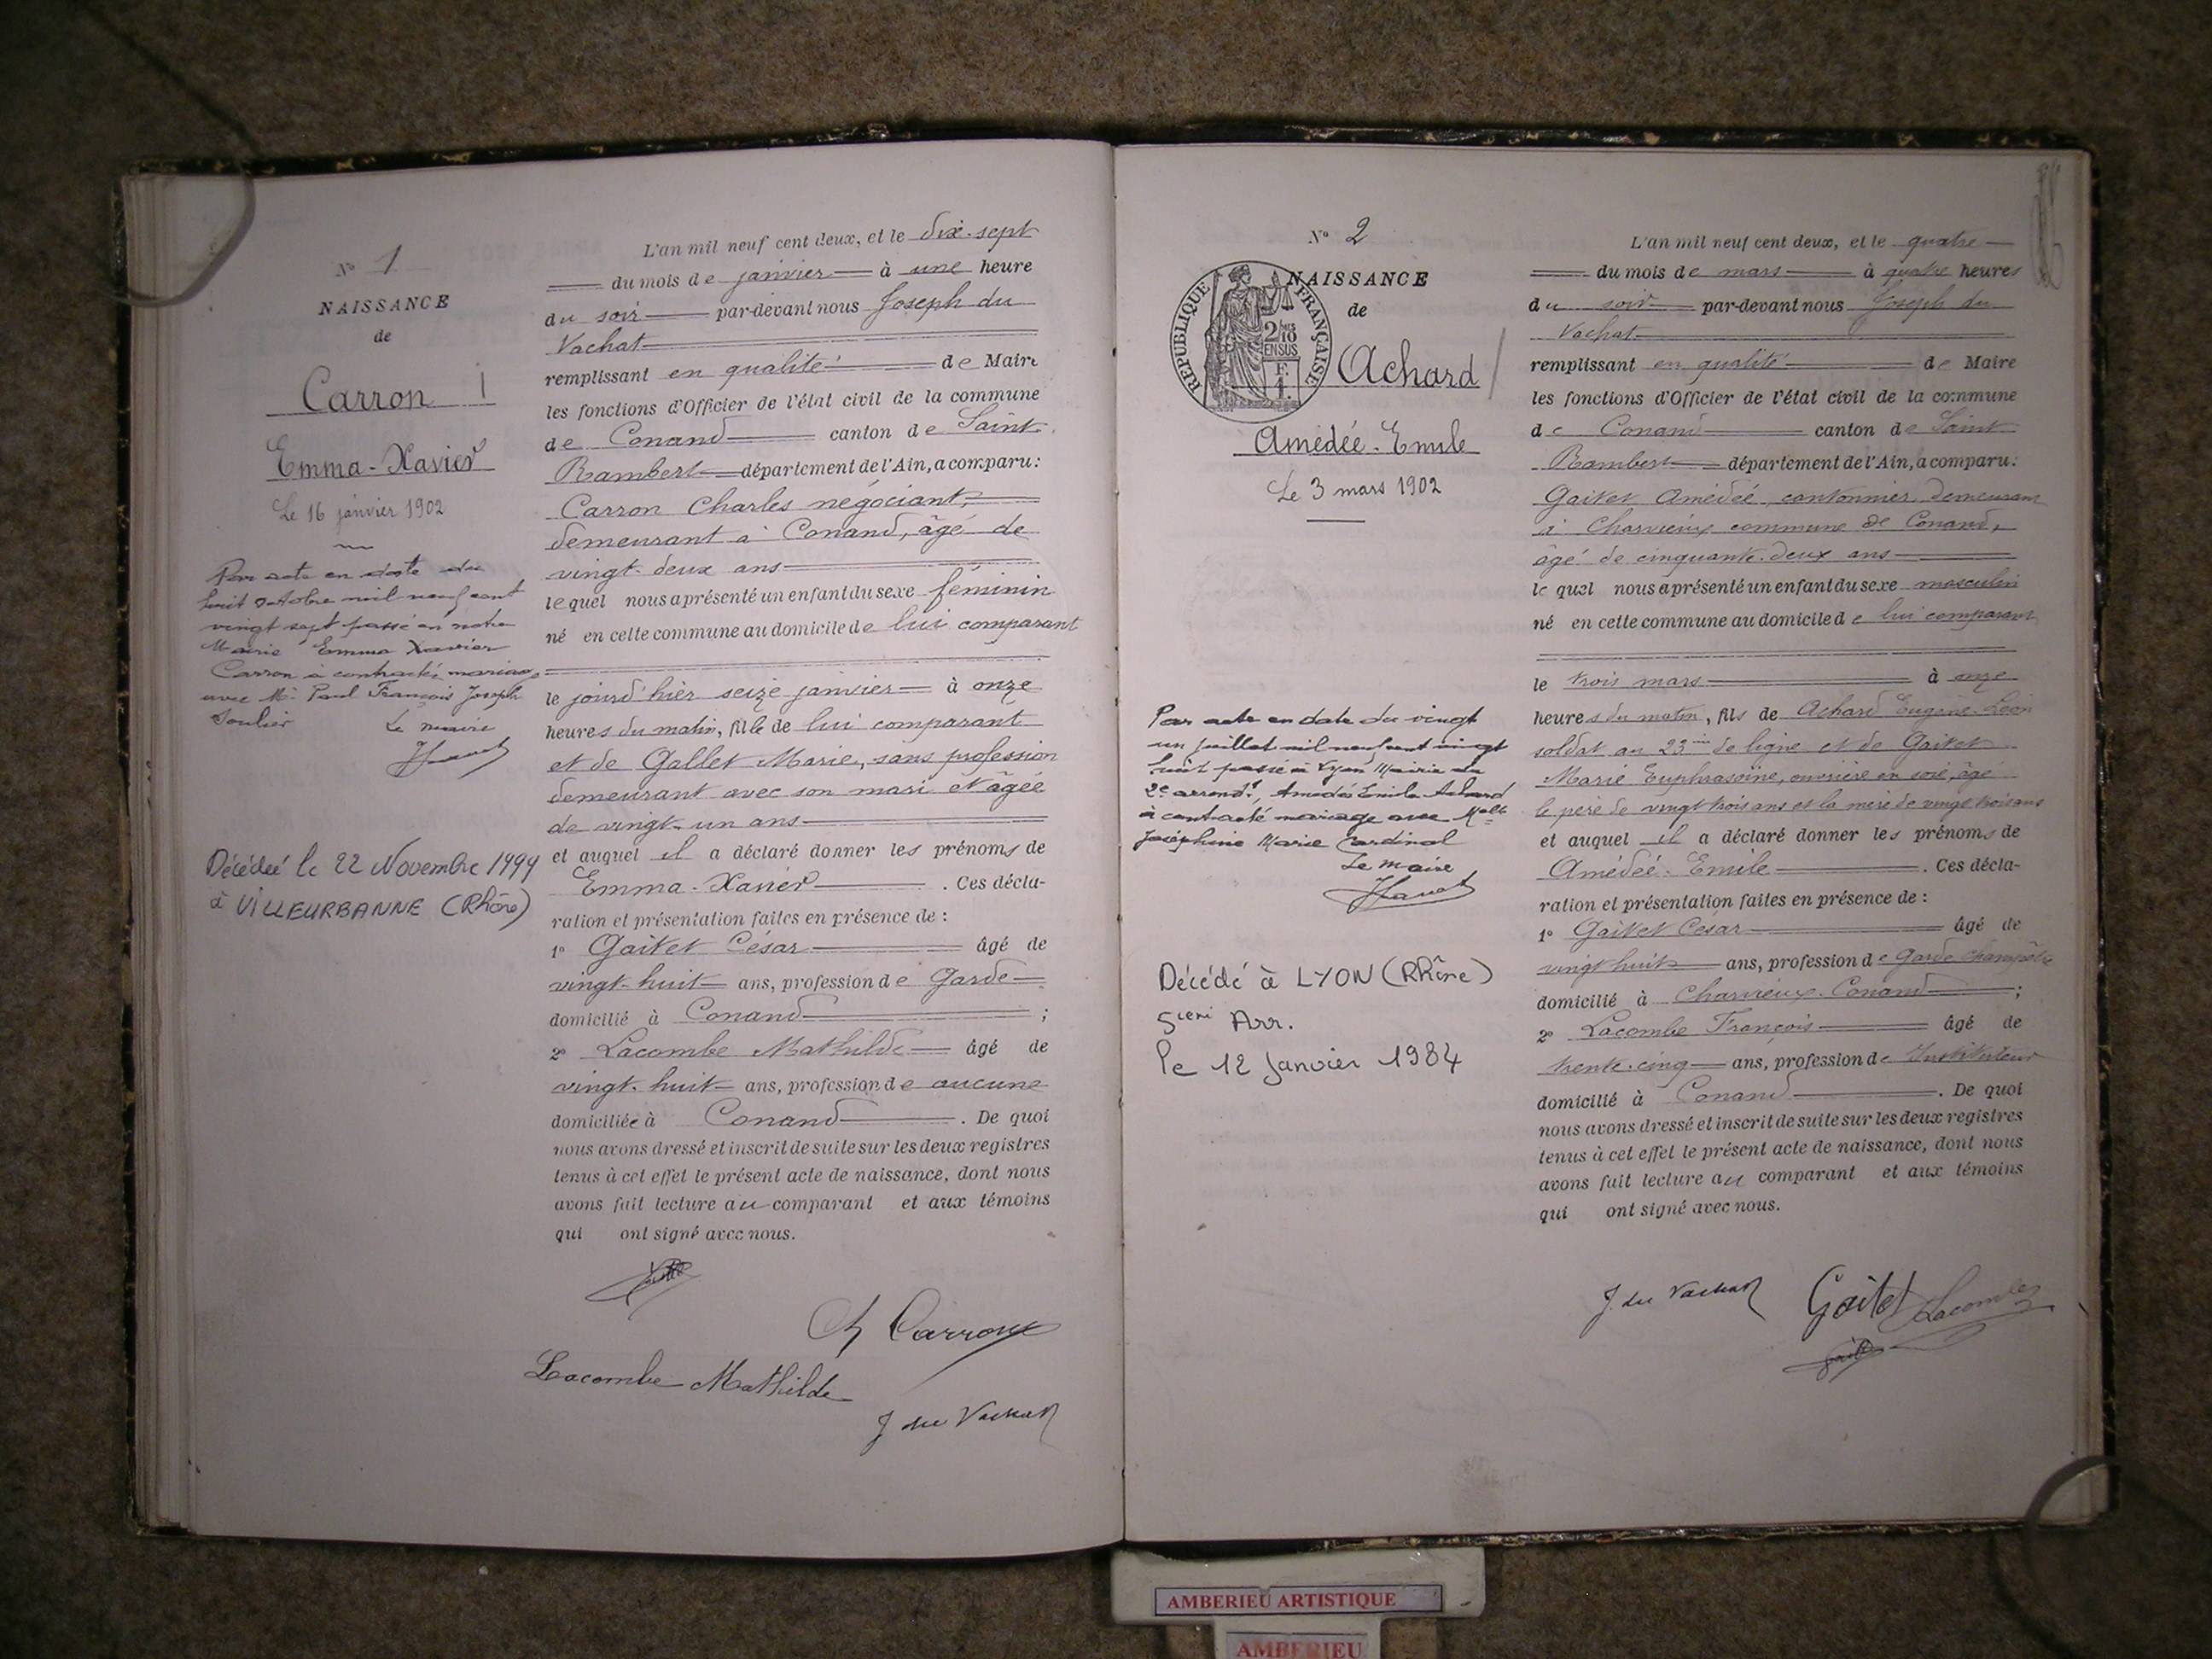 N° 1
NAISSANCE
de
Carron
Emma-Xavier
Le 16 janvier 1902
Par acte en date du
huit octobre mil neuf cent
vingt sept passé en notre
Mairie Emma Xavier
Carron à contracté mariage
avec Mr Paul François Joseph
Soulier Le maire
Décédée le 22 Novembre 1999
à VILLEURBANNE (Rhône)
L'an mil neuf cent deux, et le dix-sept
du mois de janvier à une heure
du soir par-devant nous Joseph du
Vachat
remplissant en qualité de Maire
les fonctions d'Officier de l'état civil de la commune
de Conand canton de Saint-
Rambert département de l'Ain, a comparu:
Carron Charles négociant,
demeurant à Conand, âgé de
vingt-deux ans
lequel nous a présenté un enfant du sexe féminin
né en cette commune au domicile de lui comparant
le jourd'hier seize janvier à onze
heures du matin, fille de lui comparant
et de Gallet Marie, sans profession
demeurant avec son mari et âgée
de vingt-un ans
et auquel il a déclaré donner les prénoms de
Emma-Xavier . Ces décla-
ration et présentation faites en présence de :
1° Gaitet César âgé de
vingt-huit ans, profession de Garde
domicilié à Conand ;
2° Lacombe Mathilde âgé de
vingt-huit ans, profession de aucune
domiciliée à Conand . De quoi
nous avons dressé et inscrit de suite sur les deux registres
tenus à cet effet le présent acte de naissance, dont nous
avons fait lecture au comparant et aux témoins
qui ont signé avec nous.
Ch Carron
Lacombe Mathilde
J du Vachat
N° 2
NAISSANCE
de
RÉPUBLIQUE FRANÇAISE
2/10
EN SUS
F.
1.
Achard
Amédée-Emile
Le 3 mars 1902
Par acte en date du vingt
un juillet mil neuf cent vingt
huit passé à Lyon Mairie du
2e arrondt, Amédée Emile Achard
à contracté mariage avec Melle
Joséphine Marie Cardinal
Le maire
Décédé à LYON (Rhône)
5ième Arr.
le 12 Janvier 1984
L'an mil neuf cent deux, et le quatre
du mois de mars à quatre heures
du soir par-devant nous Joseph du
Vachat
remplissant en qualité de Maire
les fonctions d'Officier de l'état civil de la commune
de Conand canton de Saint
Rambert département de l'Ain, a comparu:
Gaitet Amédée, cantonnier demeurant
à Charvieux commune de Conand,
âgé de cinquante-deux ans
lequel nous a présenté un enfant du sexe masculin
né en cette commune au domicile de lui comparant
le trois mars à onze
heures du matin, fils de Achard Eugène Léon
soldat au 23me de ligne et de Gaitet
Marie Euphrasoïne, ouvrière en soie, âgé
le père de vingt trois ans et la mère de vingt trois ans
et auquel il a déclaré donner les prénoms de
Amédée-Emile . Ces décla-
ration et présentation faites en présence de :
1° Gaitet César âgé de
vingt huit ans, profession de Garde champêtre
domicilié à Charvieux-Conand ;
2° Lacombe François âgé de
trente-cinq ans, profession de Instituteur
domicilié à Conand . De quoi
nous avons dressé et inscrit de suite sur les deux registres
tenus à cet effet le présent acte de naissance, dont nous
avons fait lecture au comparant et aux témoins
qui ont signé avec nous.
J du Vachat Gaitet Lacombe
AMBERIEU ARTISTIQUE
AMBERIEU